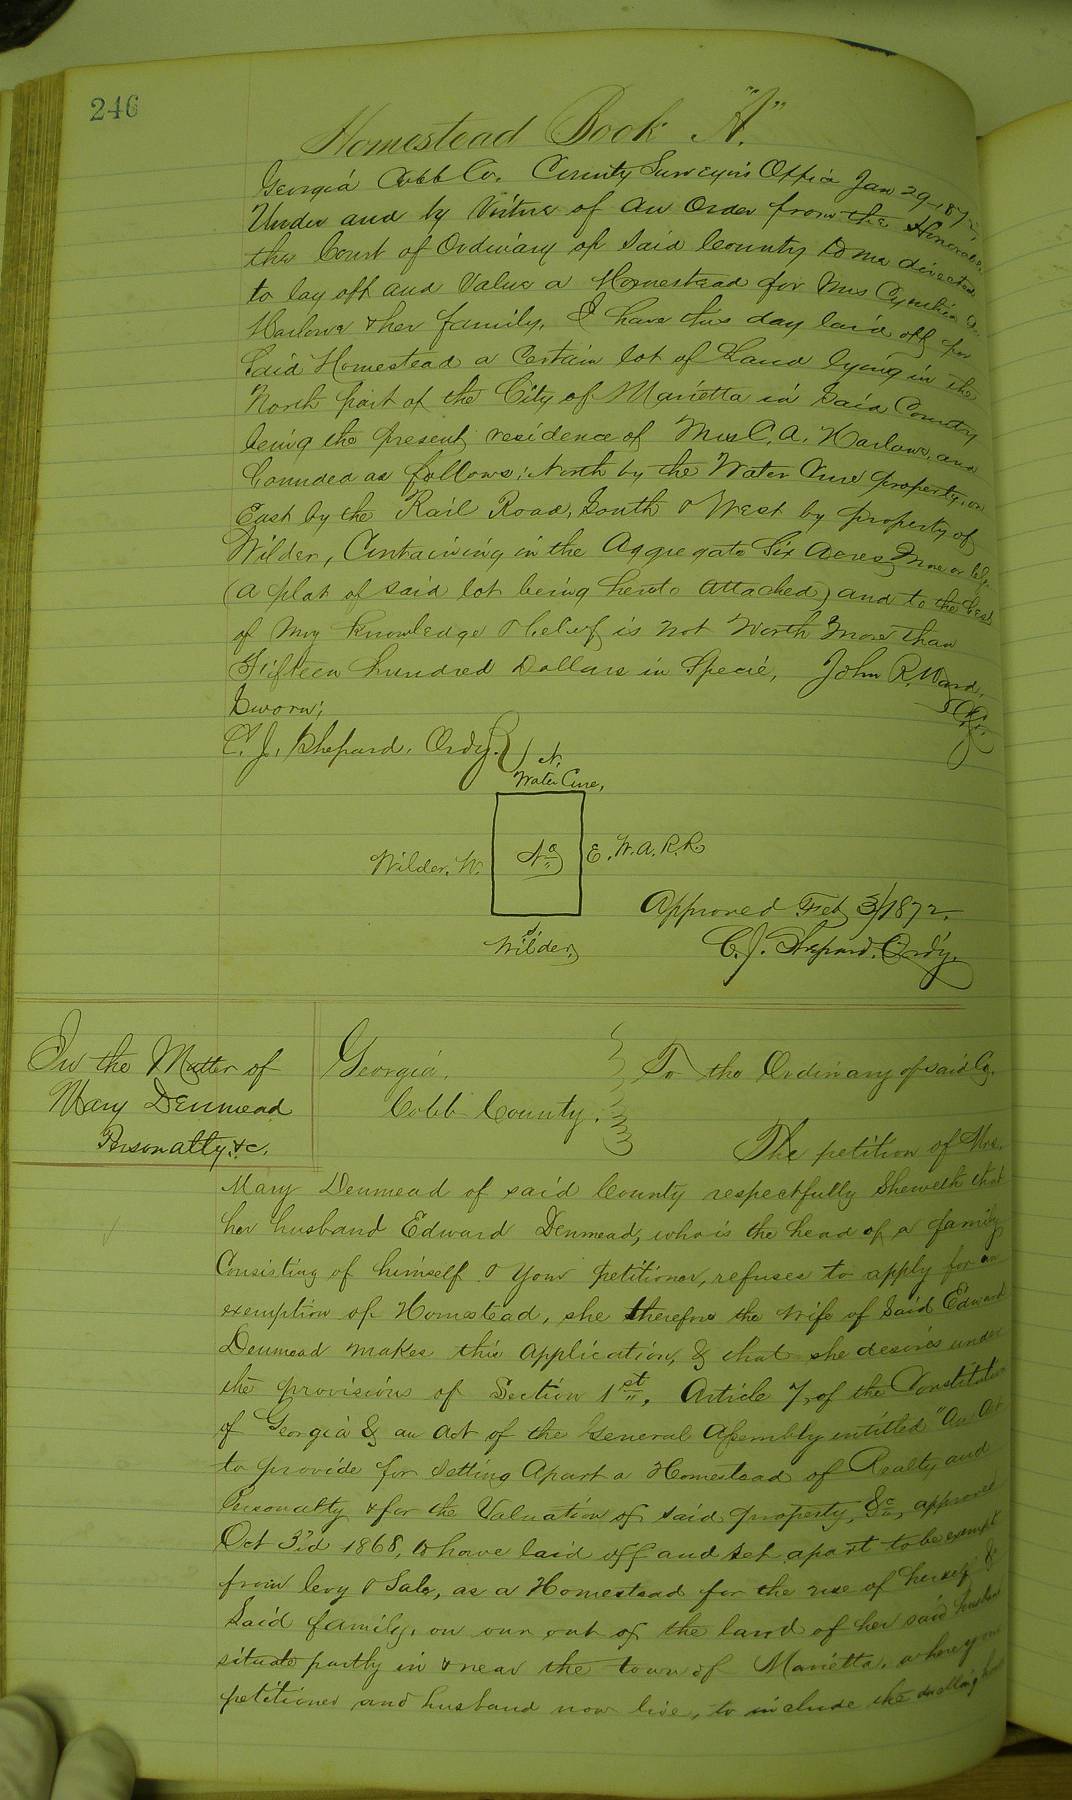 246
Homestead Book "A."
Georgia Cobb Co. County Surveyor's Office Jan 29 1872,
Under and by Virtue of an Order from the Honorable
the Court of Ordinary of said County to me directed
to lay off and Value a Homestead for Mrs Cynthia A.
Harlowe & her family, I have this day laid off for
Said Homestead a Certain lot of Land lying in the
North part of the City of Marietta in Said County
being the present residence of Mrs C. A. Harlowe, and
bounded as follows: North by the Water Cure property, on
East by the Rail Road, South & West by property of
Wilder, Containing in the Aggregate Six Acres more or less
(a plat of said lot being hereto attached) and to the best
of my knowledge & belief is not Worth more than
Fifteen hundred Dollars in Specie, John R. Ward,
Sworn;
C. J. Shepard, Ordy.
N.
Water Cure,
Wilder, W. E. W. A. R. R.
S.
Wilder,
Approved Feb 3/1872.
C. J. Shepard, Ordy.
In the Matter of
Mary Denmead
Personalty &c.
Georgia,
Cobb County.
To the Ordinary of said Co.
The petition of Mrs.
Mary Denmead of said County respectfully sheweth that
her husband Edward Denmead, who is the head of a family
Consisting of himself & your petitioner, refuses to apply for an
exemption of Homestead, she therefore the wife of Said Edward
Denmead makes this application, & that she desires under
the provisions of Section 1st, Article 7, of the Constitution
of Georgia & an act of the General Assembly entitled "An Act
to provide for setting Apart a Homestead of Realty and
Personalty & for the Valuation of said property, &c, approved
Oct 3rd 1868, to have laid off and set apart to be exempt
from levy & Sale, as a Homestead for the use of herself &
Said family, on our out of the land of her said husband
situate partly in & near the town of Marietta, where your
petitioner and husband now live, to include the dwelling house